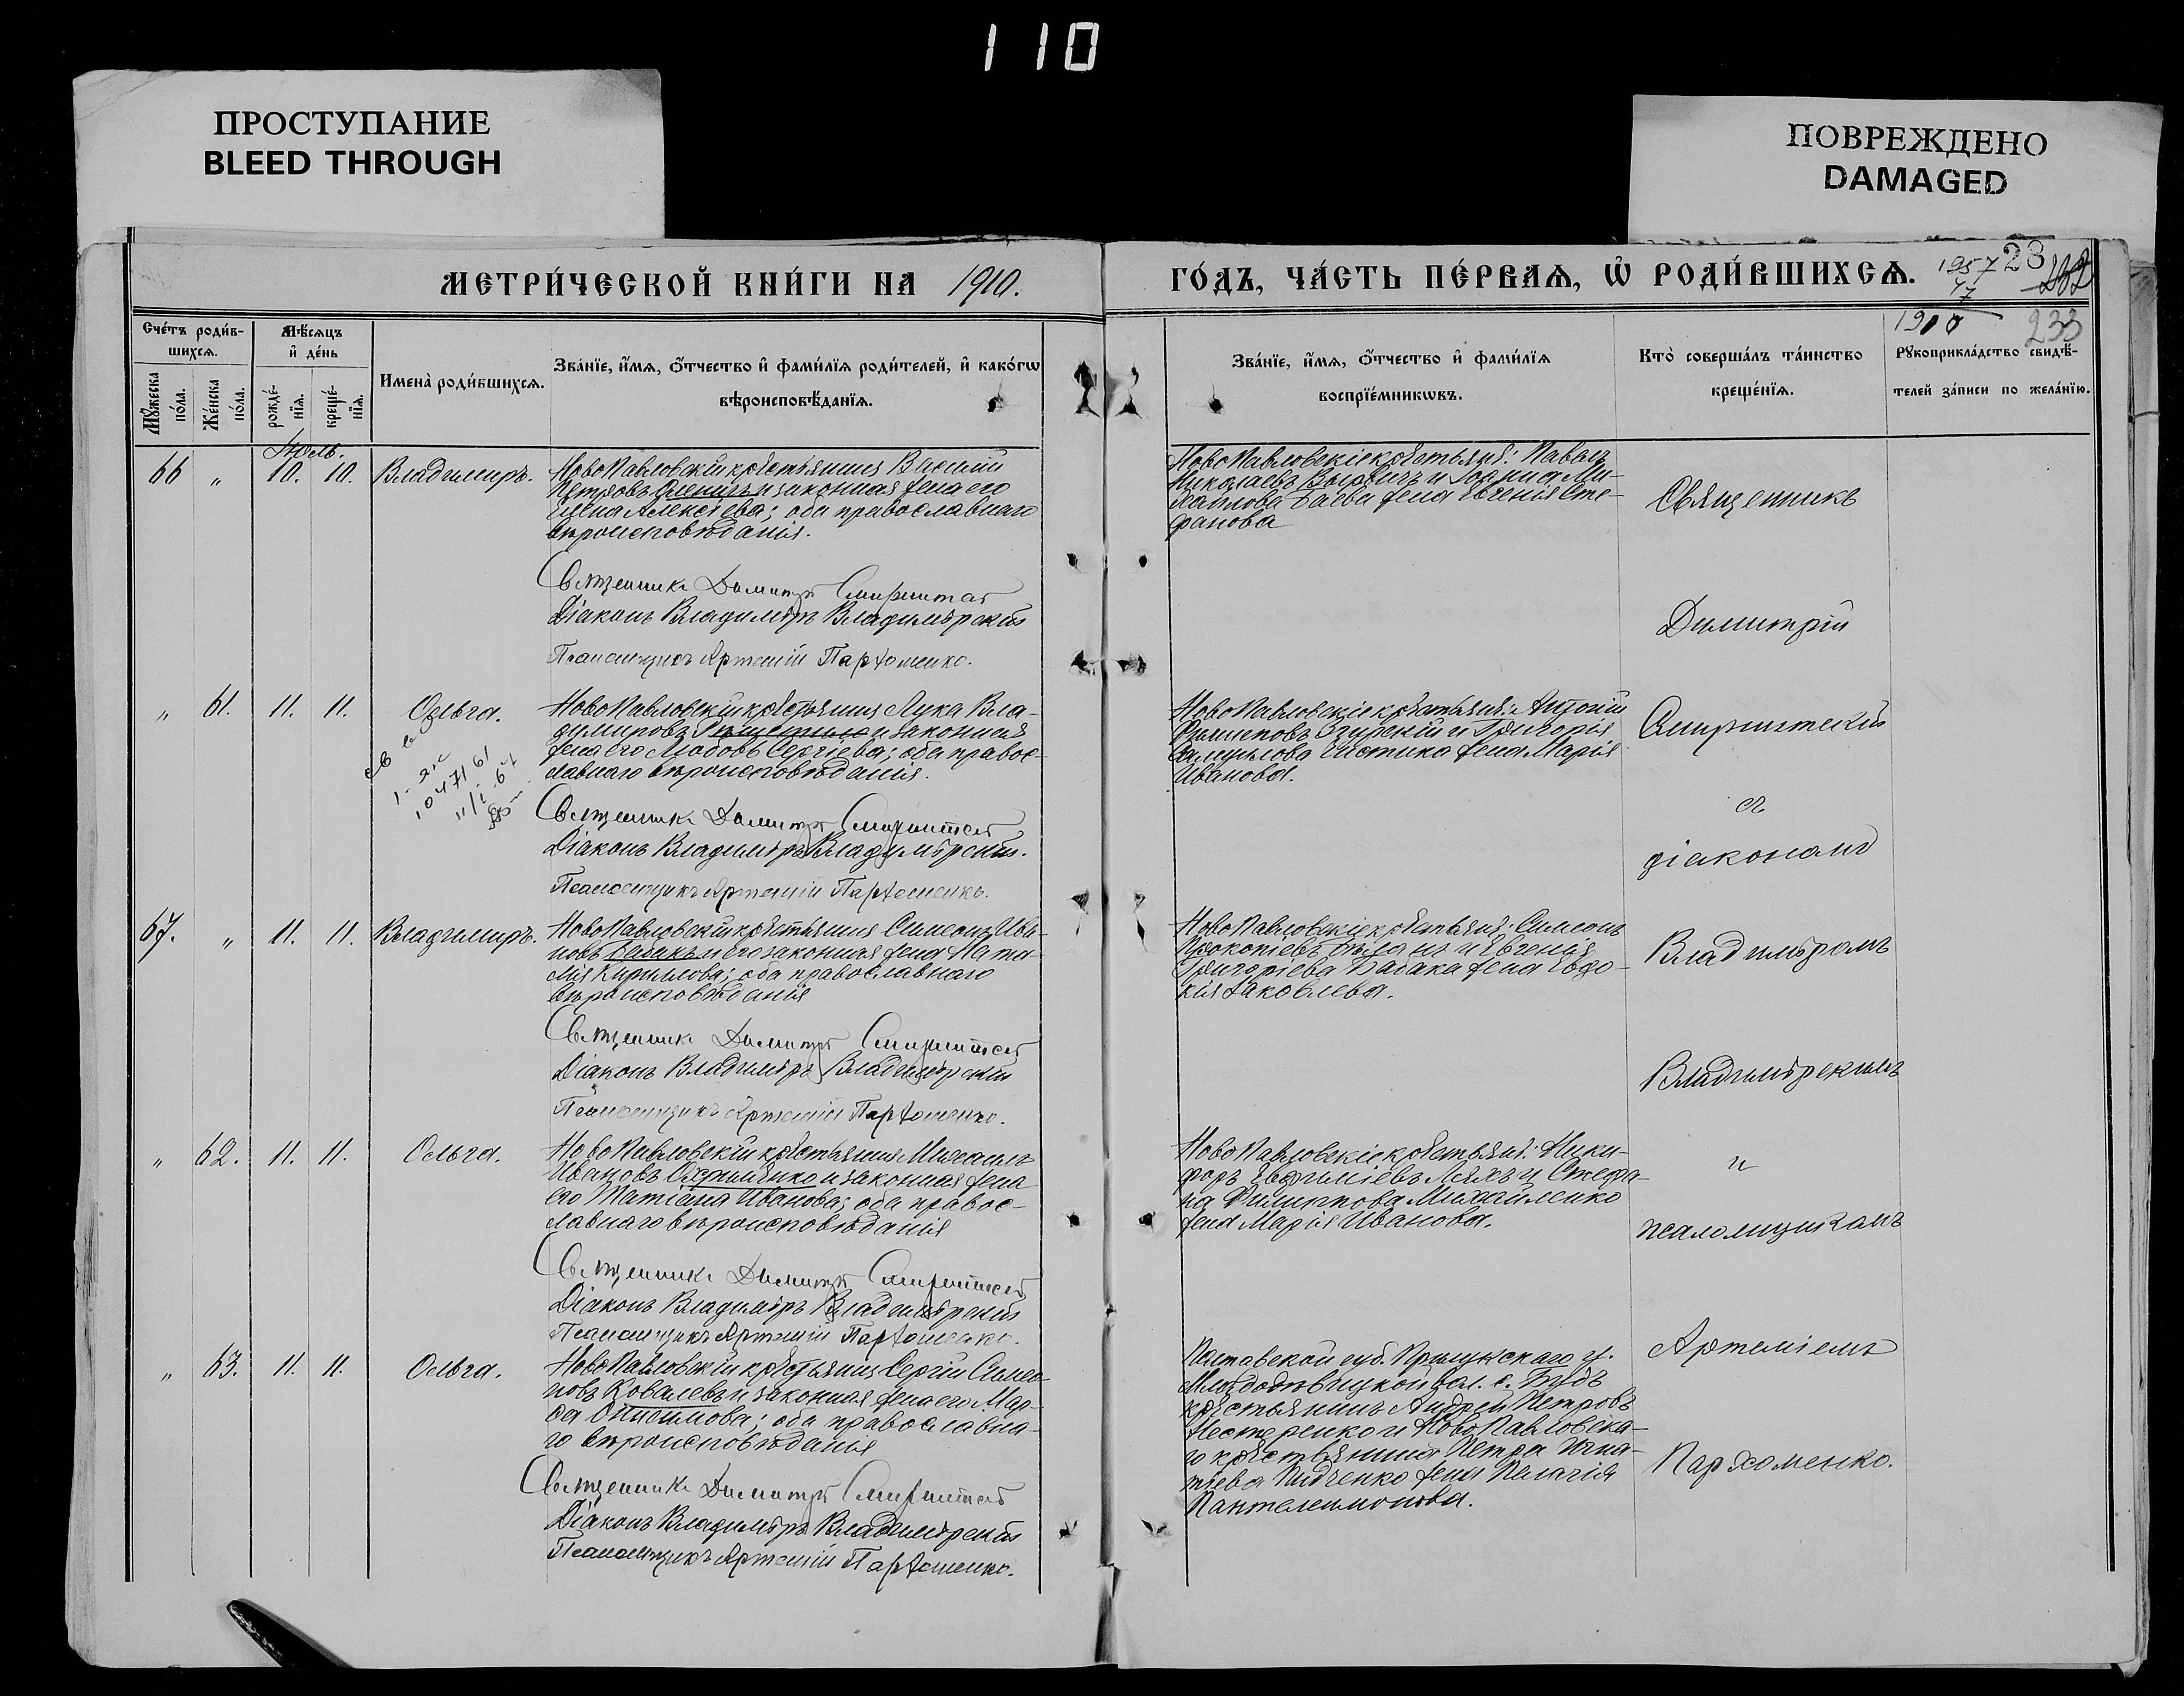 110
ПРОСТУПАНИЕ
BLEED THROUGH
ПОВРЕЖДЕНО
DAMAGED
МЕТРИ́ЧЕСКОЙ КНИ́ГИ НА 1910.
ГО́ДЪ, ЧА́СТЬ ПЕ́РВАѦ, Ѽ РОДИ́ВШИХСѦ.
1957
47
1910
23
233
Сче́тъ роди́в-
шихсѧ.
Мѣ́сѧцъ
и҆ де́нь
Мꙋ́жеска
по́ла.
Же́нска
по́ла.
рожде́-
нїѧ.
креще́-
нїѧ.
Имена̀ роди́вшихсѧ.
Зва́нїе, и҆́мѧ, ѻ҆́тчество и҆ фами́лїѧ роди́телей, и҆ како́гѡ
вѣроисповѣ́данїѧ.
Зва́нїе, и҆́мѧ, ѻ҆́тчество и҆ фами́лїѧ
воспрїе́мникѡвъ.
Кто̀ соверша́лъ та́инство
креще́нїѧ.
Рꙋкоприкла́дство свидѣ́-
телей за́писи по жела́нїю.
Іюль.
66 " 10. 10. Владимиръ.
НовоПавловскій крестьянинъ Василій
Петровъ и законная жена его
Елена Алексѣева; оба православнаго
вѣроисповѣданія.
Священникъ Димитрій
Діаконъ Владиміръ Владимірскій
Псаломщикъ Артемій Пархоменко.
НовоПавловскіе крестьяне: Павелъ
Николаевъ и Іоанна Ми-
хайлова Баева жена Евгенія Сте-
фанова
Священникъ
Димитрій
" 61. 11. 11. Ольга.
НовоПавловскій крестьянинъ Лука Вла-
димировъ и законная
жена его Любовь Сергіева; оба правос-
лавнаго вѣроисповѣданія.
Священникъ Димитрій
Діаконъ Владиміръ Владимірскій.
Псаломщикъ Артемій Пархоменко.
НовоПавловскіе крестьяне: Антоній
Филиповъ и Григорія
Самуилова Чистика жена Марія
Иванова.
съ
діакономъ
67. " 11. 11. Владимиръ.
НовоПавловскій крестьянинъ Симеонъ Ива-
новъ Бабакъ и его законная жена Ната-
лія Кириллова; оба православнаго
вѣроисповѣданія
Священникъ Димитрій
Діаконъ Владиміръ Владимірскій
Псаломщикъ Артемій Пархоменко.
НовоПавловскіе крестьяне: Симеонъ
Прокопіевъ и Евгенія
Григоріева Бабака жена Евдо-
кія Іаковлева.
Владиміромъ
Владимірскимъ
" 62. 11. 11. Ольга.
НовоПавловскій крестьянинъ Михаилъ
Ивановъ и законная жена
его Татіана Иванова; оба правос-
лавнаго вѣроисповѣданія
Священникъ Димитрій
Діаконъ Владиміръ Владимірскій
Псаломщикъ Артемій Пархоменко.
НовоПавловскіе крестьяне: Ники-
форъ Евфиміевъ Ляхъ и Стефа-
на Филиппова Михайленко
жена Марія Иванова.
и
псаломщикомъ
" 63. 11. 11. Ольга.
НовоПавловскій крестьянинъ Сергій Симео-
новъ Ковалевъ и законная жена его Мар-
фа Онисимова; оба православна-
го вѣроисповѣданія
Священникъ Димитрій
Діаконъ Владиміръ Владимірскій
Псаломщикъ Артемій Пархоменко.
Полтавской губ. Прилукскаго у.
вол. с.
крестьянинъ Андрей Петровъ
Нестеренко и НовоПавловска-
го крестьянина Петра Игна-
тіева жена Пелагія
Пантелеимонова.
Артеміемъ
Пархоменко.